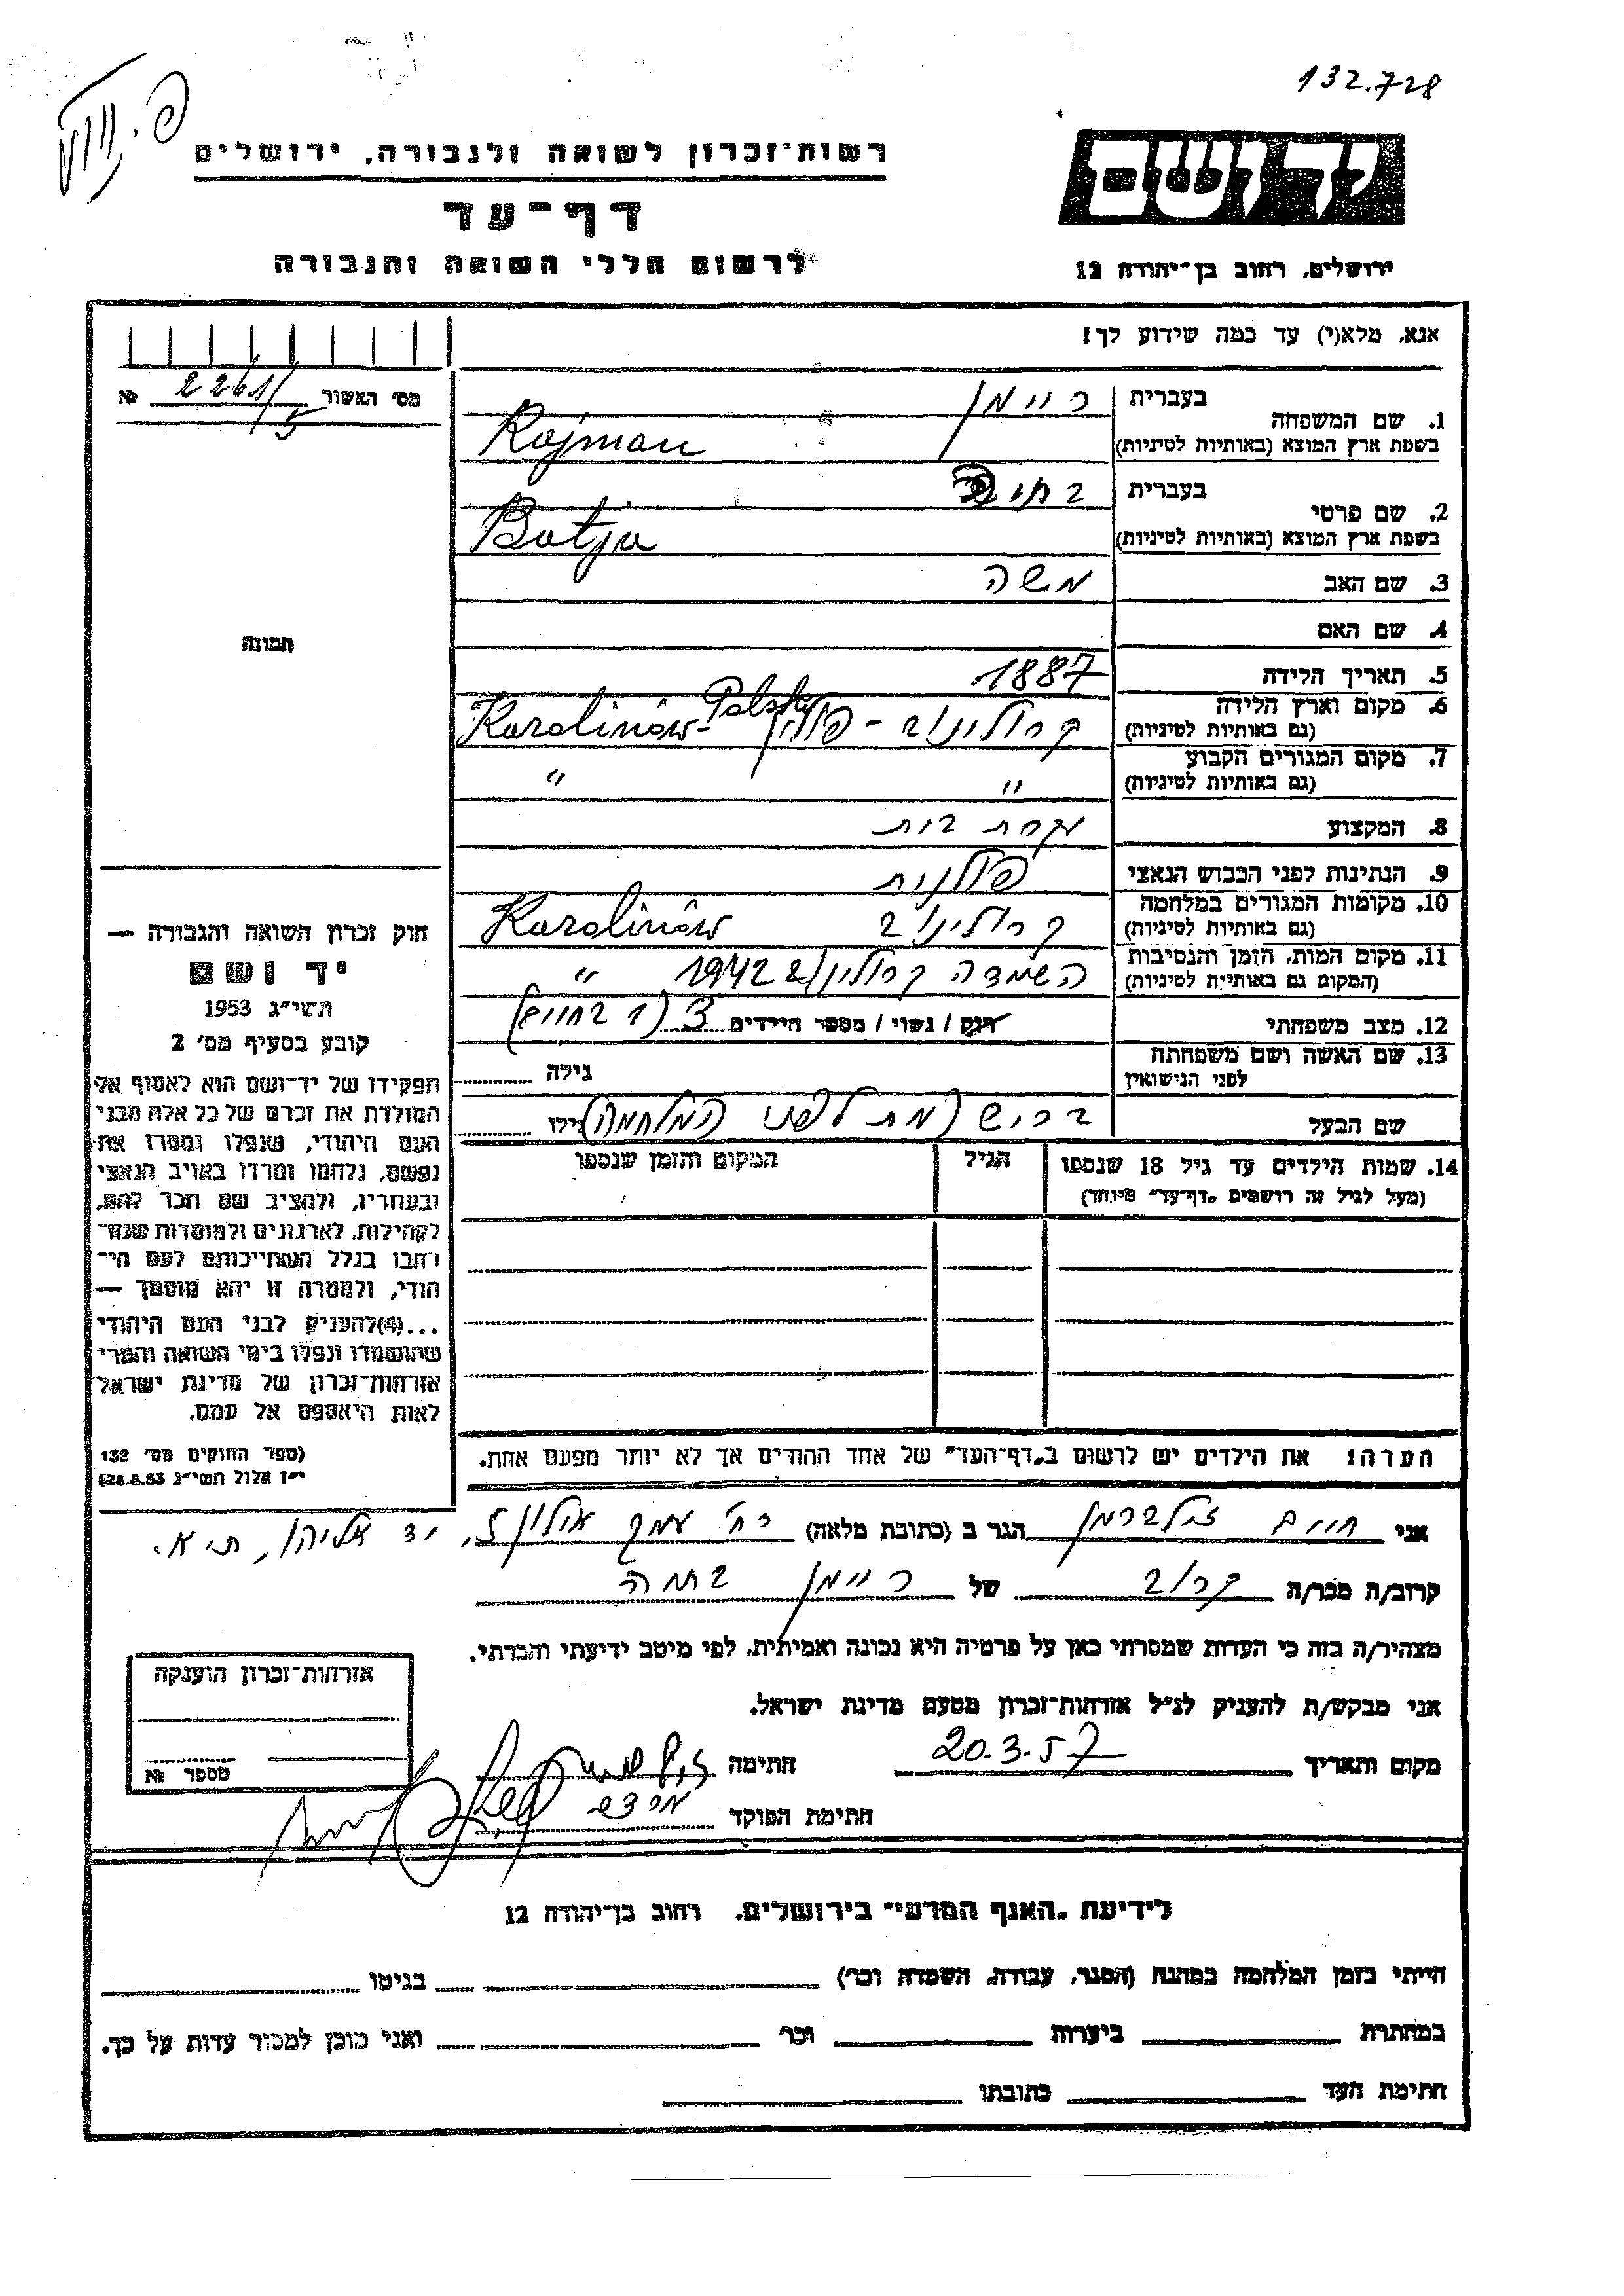 132.728
רשות־זכרון לשואה ולגבורה, ירושלים
דף־עד
לרשום חללי השואה והגבורה
יד ושם
ירושלים, רחוב בן־יהודה 12
אנא, מלא(י) עד כמה שידוע לך!
מס׳ האשור 2261/5 №
1. שם המשפחה
בעברית ריימן
בשפת ארץ המוצא (באותיות לטיניות) Rajman
2. שם פרטי
בעברית
בשפת ארץ המוצא (באותיות לטיניות) Batja
3. שם האב משה
4. שם האם
5. תאריך הלידה 1887
6. מקום וארץ הלידה
(גם באותיות לטיניות) קרולינוב - פולין Karolinów - Polska
7. מקום המגורים הקבוע
(גם באותיות לטיניות) " "
8. המקצוע עקרת בית
9. הנתינות לפני הכבוש הנאצי פולנית
10. מקומות המגורים במלחמה
(גם באותיות לטיניות) קרולינוב Karolinów
11. מקום המות, הזמן והנסיבות
(המקום גם באותיות לטיניות) השמדה קרולינוב 1942 "
12. מצב משפחתי רוק / נשוי / מספר הילדים 3 (1 בחיים)
13. שם האשה ושם משפחתה
לפני הנישואין גילה
שם הבעל בריש (מת לפני המלחמה) גילו
14. שמות הילדים עד גיל 18 שנספו
(מעל לגיל זה רושמים „דף־עד" מיוחד)
הגיל
המקום והזמן שנספו
הערה! את הילדים יש לרשום ב„דף־העד" של אחד ההורים אך לא יותר מפעם אחת.
תמונה
חוק זכרון השואה והגבורה —
יד ושם
תשי״ג 1953
קובע בסעיף מס׳ 2
תפקידו של יד־ושם הוא לאסוף אל
המולדת את זכרם של כל אלה מבני
העם היהודי, שנפלו ומסרו את
נפשם, נלחמו ומרדו באויב הנאצי
ובעוזריו, ולהציב שם וזכר להם,
לקהילות, לארגונים ולמוסדות שנח־
רבו בגלל השתייכותם לעם הי־
הודי, ולמטרה זו יהא מוסמך —
...(4)להעניק לבני העם היהודי
שהושמדו ונפלו בימי השואה והמרי
אזרחות־זכרון של מדינת ישראל
לאות היאספם אל עמם.
(ספר החוקים מס׳ 132
י״ז אלול תשי״ג 28.8.53)
אני חיים זילברמן הגר ב (כתובת מלאה) רח׳ עמק אילון 2, יד אליהו, ת.א.
קרוב/ה מכר/ה קרוב של ריימן בתיה
מצהיר/ה בזה כי העדות שמסרתי כאן על פרטיה היא נכונה ואמיתית, לפי מיטב ידיעתי והכרתי.
אני מבקש/ת להעניק לנ״ל אזרחות־זכרון מטעם מדינת ישראל.
מקום ותאריך 20.3.57 חתימה
חתימת הפוקד
אזרחות־זכרון הוענקה
מספר №
לידיעת „האגף המדעי" בירושלים. רחוב בן־יהודה 12
הייתי בזמן המלחמה במחנה (הסגר, עבודה, השמדה וכו׳) בגיטו
במחתרת ביערות וכו׳ ואני מוכן למסור עדות על כך.
חתימת העד כתובתו